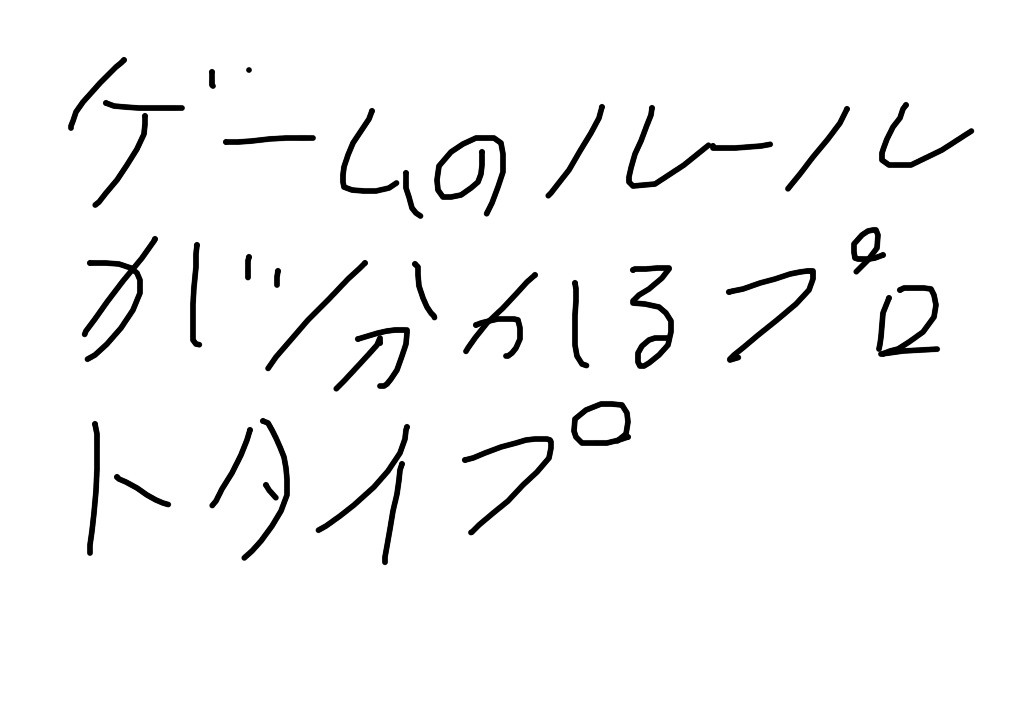 ゲームのルール
が分かるプロ
トタイプ